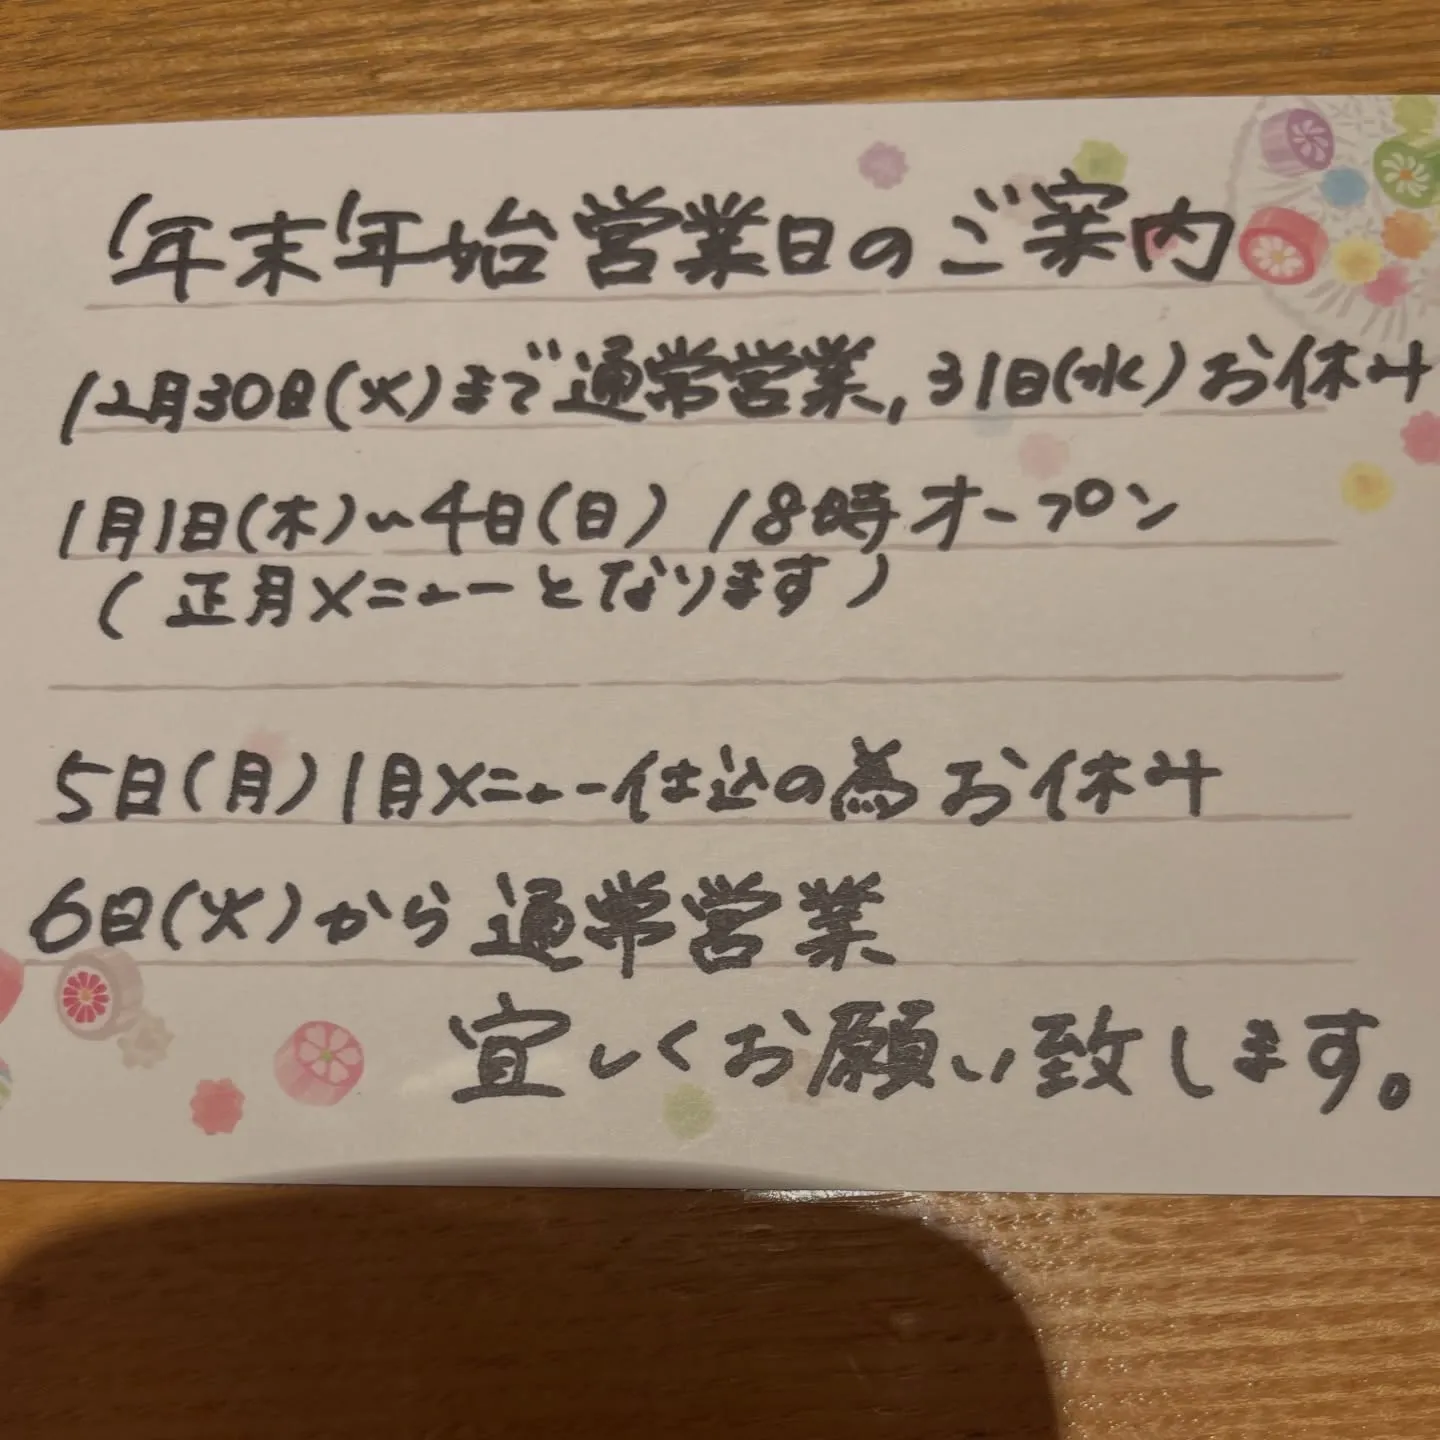 年末年始営業日のご案内
12月30日(火)まで通常営業,31日(水)お休み
1月1日(木)〜4日(日) 18時オープン
(正月メニューとなります)
5日(月)1月メニュー仕込の為お休み
6日(火)から通常営業
宜しくお願い致します。